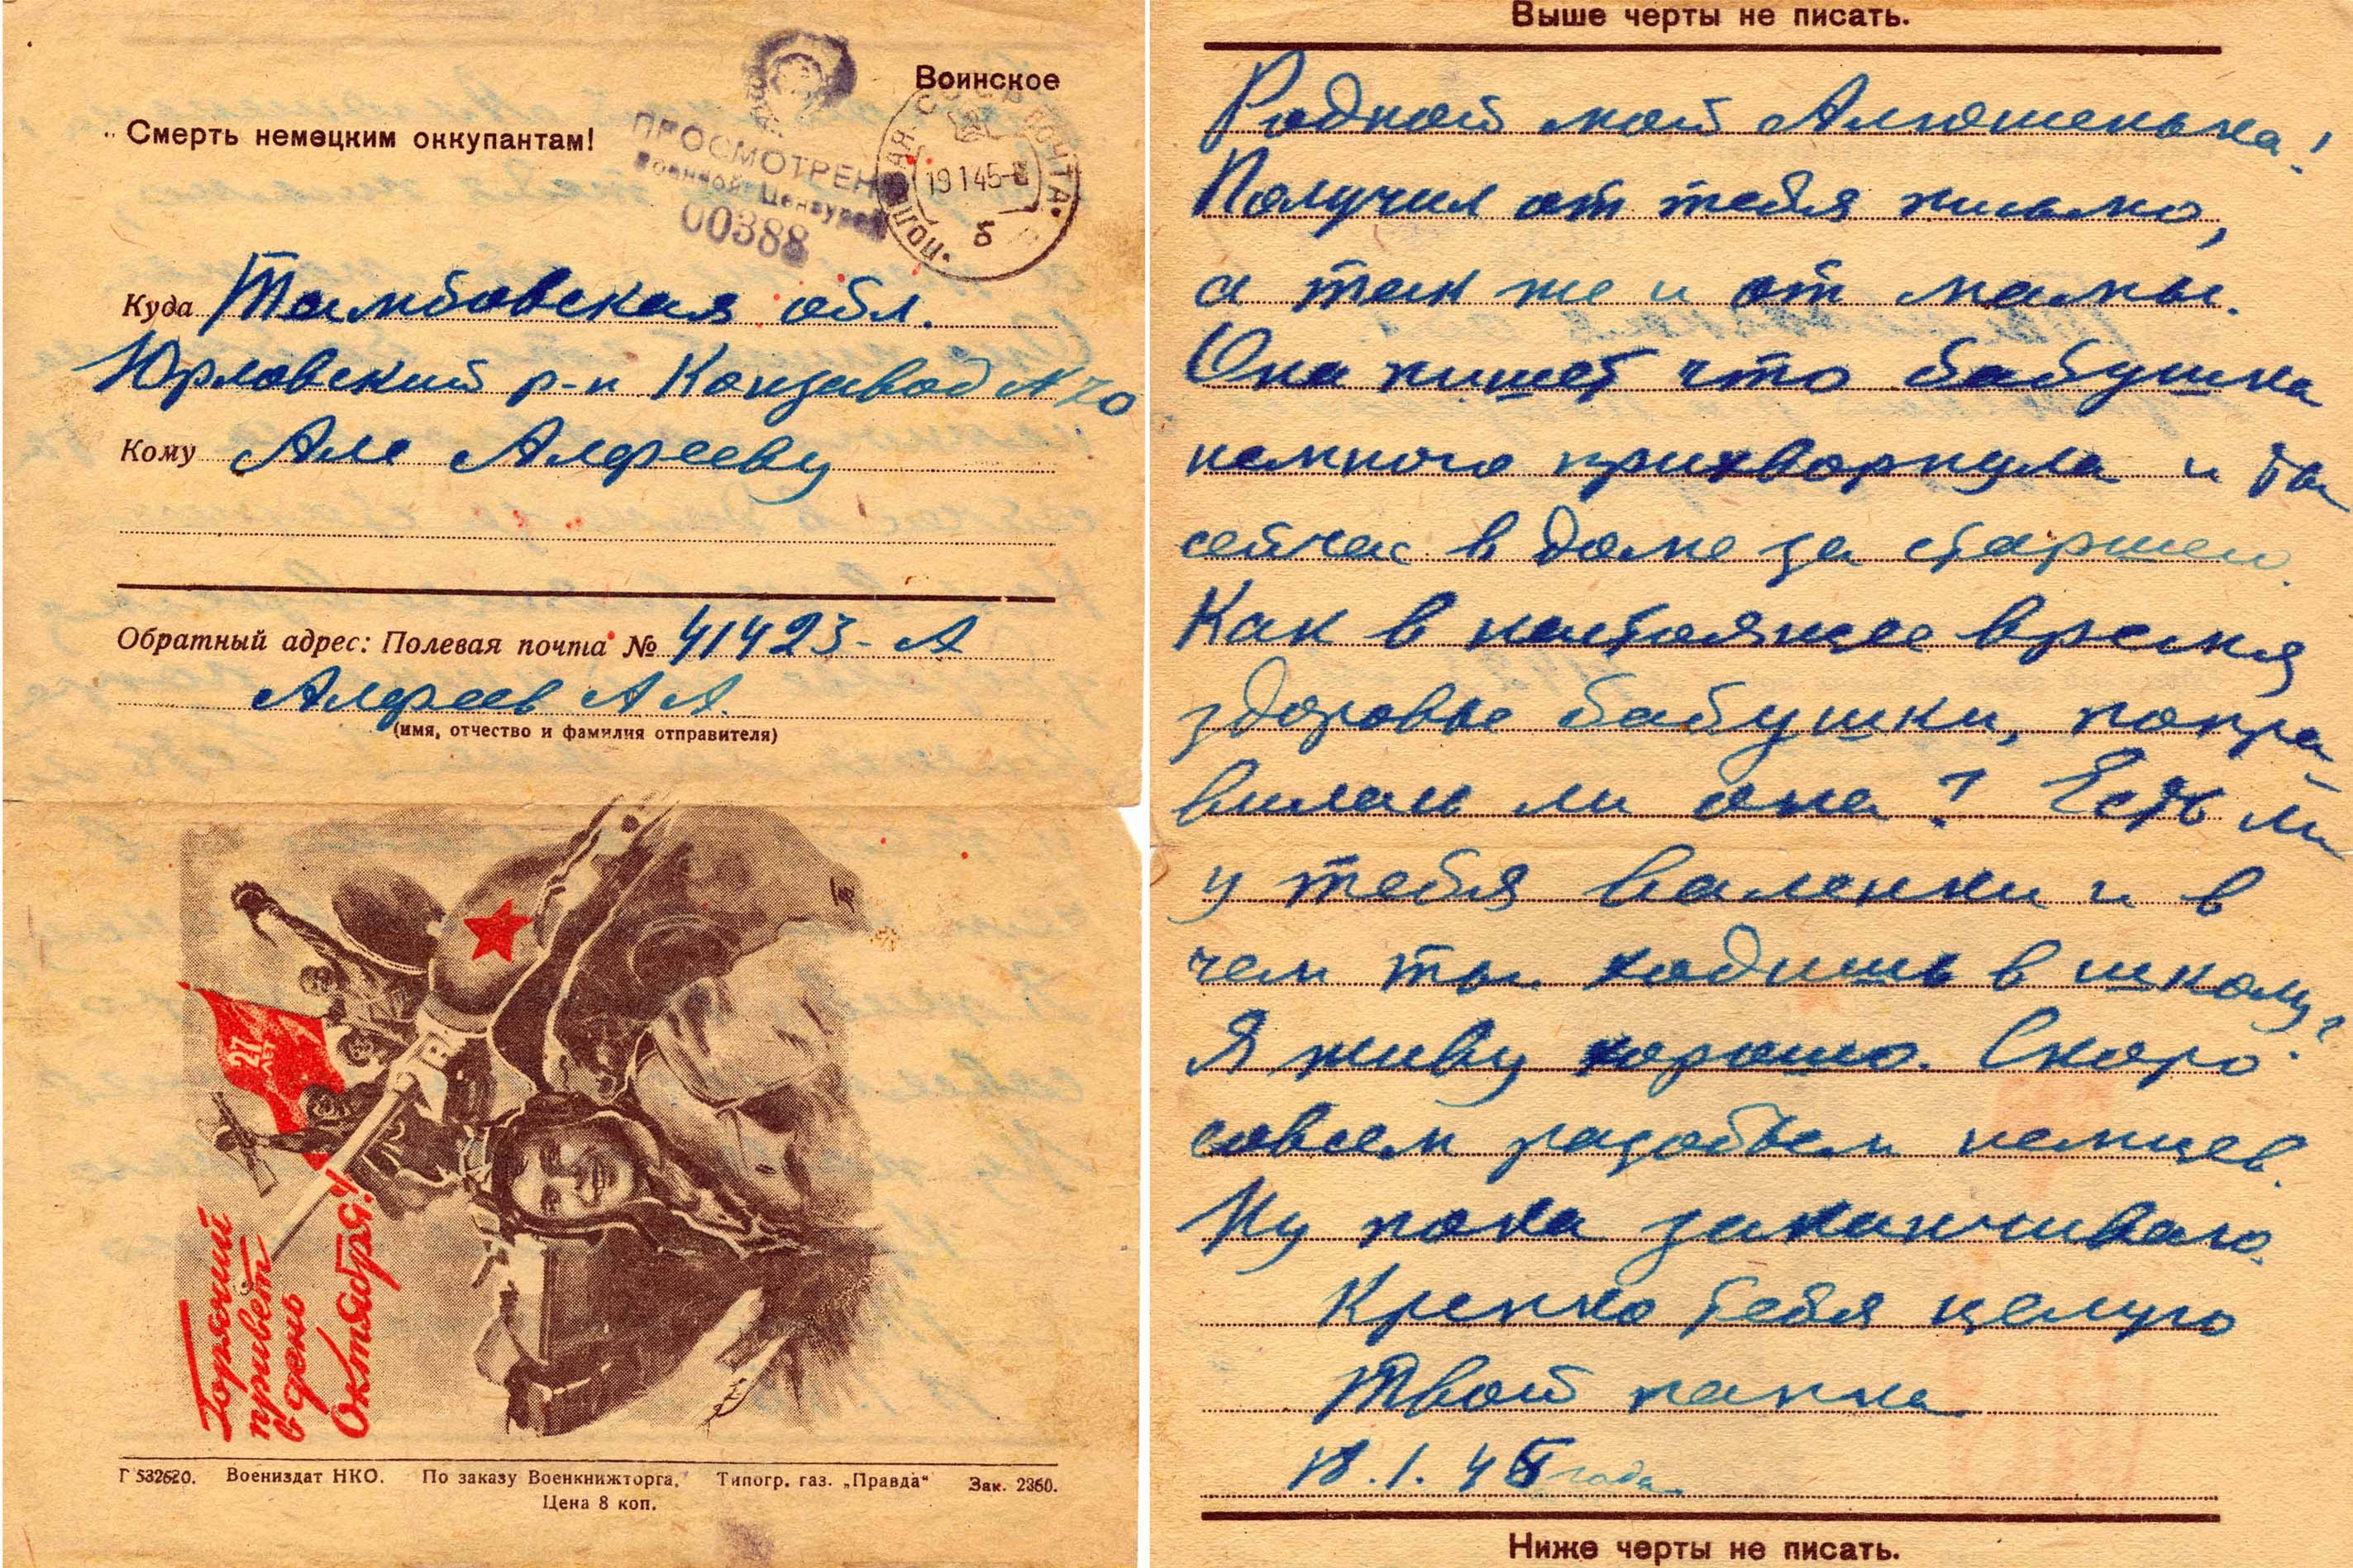 Воинское
Смерть немецким оккупантам!
ПРОСМОТРЕНО
Военной Цензурой
00388
ПОЛЕВАЯ ПОЧТА
19 1 45
б
Куда Тамбовская обл.
Юрловский р-н Конзавод № 70
Кому Але Алфееву
Обратный адрес: Полевая почта № 41423-А
Алфеев А А.
(имя, отчество и фамилия отправителя)
27 ЛЕТ
Горячий
привет
в день
Октября!
Г 532620. Воениздат НКО. По заказу Военкнижторга. Типогр. газ. „Правда“ Зак. 2360.
Цена 8 коп.
Выше черты не писать.
Родной мой Алюшенька!
Получил от тебя письмо,
а так же и от мамы.
Она пишет что бабушка
немного прихворнула и ты
сейчас в доме за старшего.
Как в настоящее время
здоровье бабушки, попра-
вилась ли она? Есть ли
у тебя валенки и в
чем ты ходишь в школу?
Я живу хорошо. Скоро
совсем разобьем немцев.
Ну пока заканчиваю.
Крепко тебя целую
Твой папка
18.1.45 года.
Ниже черты не писать.